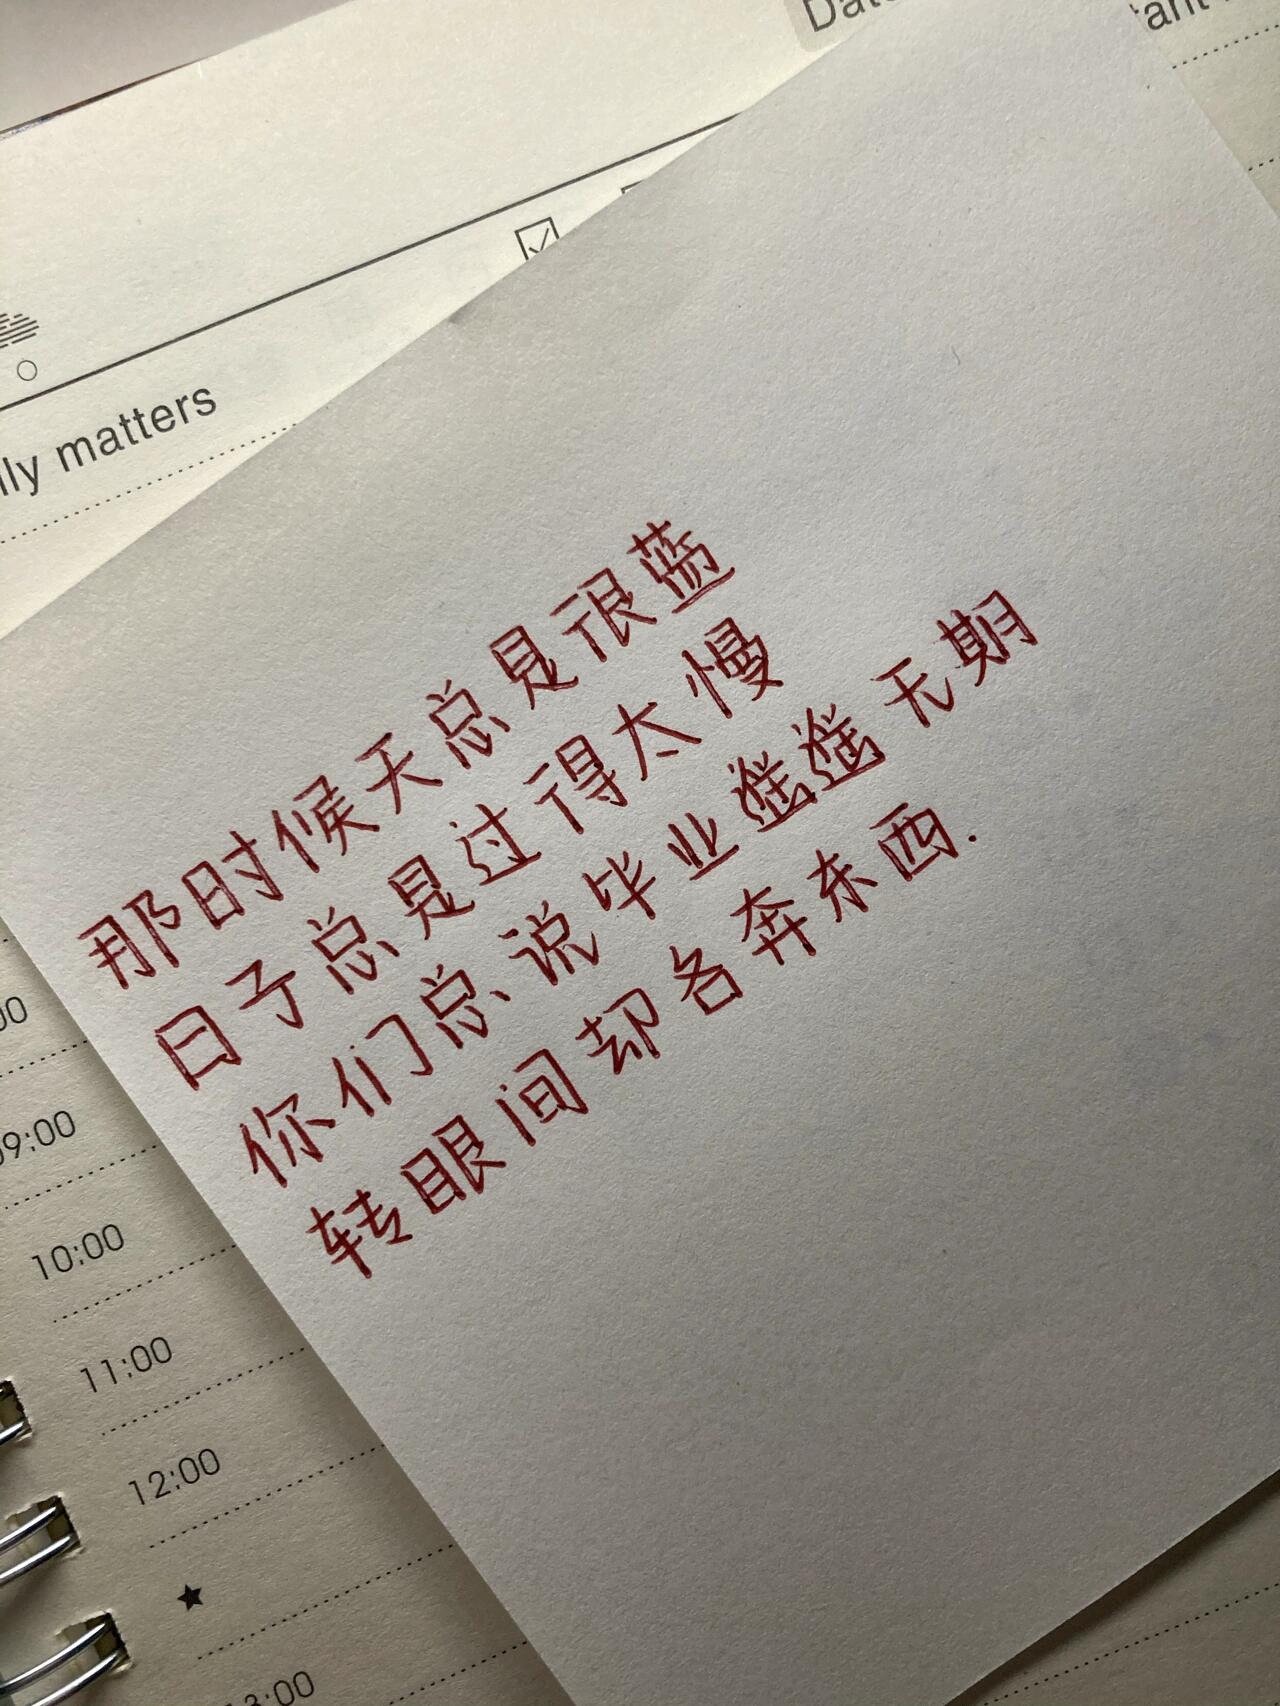 Dat
tant
lly matters
那时候天总是很蓝
日子总是过得太慢
你们总说毕业遥遥无期
转眼间却各奔东西.
00
09:00
10:00
11:00
12:00
13:00